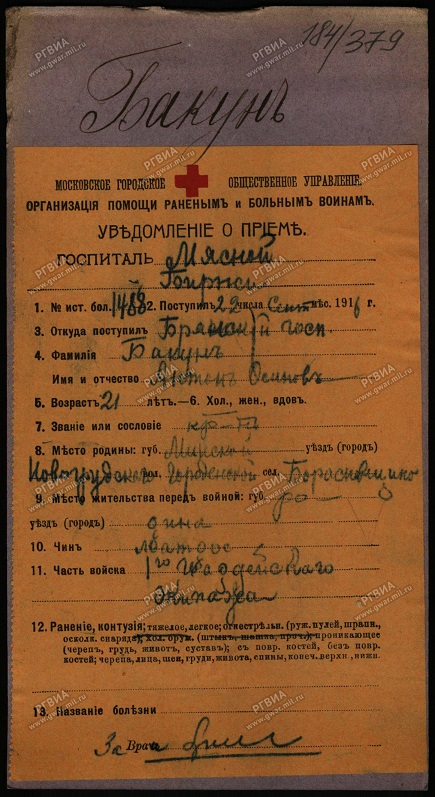 184/379
Бакунъ
МОСКОВСКОЕ ГОРОДСКОЕ ОБЩЕСТВЕННОЕ УПРАВЛЕНІЕ.
ОРГАНИЗАЦІЯ ПОМОЩИ РАНЕНЫМЪ и БОЛЬНЫМЪ ВОИНАМЪ.
УВѢДОМЛЕНІЕ О ПРІЕМѢ.
ГОСПИТАЛЬ Мясной
Биржи
1. № ист. бол. 1488 2. Поступилъ 22 числа Сент мѣс. 1916 г.
3. Откуда поступилъ Брянскій госп
4. Фамилія Бакунъ
Имя и отчество Антонъ Осиповъ
5. Возрастъ 21 лѣтъ.—6. Хол., жен., вдов.
7. Званіе или сословіе кр-нъ
8. Мѣсто родины: губ. Минской уѣздъ (городъ)
Новогрудскаго вол. Городенской сел.
9. Мѣсто жительства передъ войной: губ. ро
уѣздъ (городъ) дина
10. Чинъ матрос
11. Часть войска 1го Гвардейскаго
Экипажа
12. Раненіе, контузія; тяжелое, легкое; огнестрѣльн. (руж. пулей, шрапн., осколк. снаряда), хол. оруж. (штыкъ, шашка, проч.); проникающее (черепъ, грудь, животъ, суставъ); съ повр. костей, безъ повр. костей; черепа, лица, шеи, груди, живота, спины, конеч. верхн., нижн.
13. Названіе болѣзни
За Врача
РГВИА
www.gwar.mil.ru